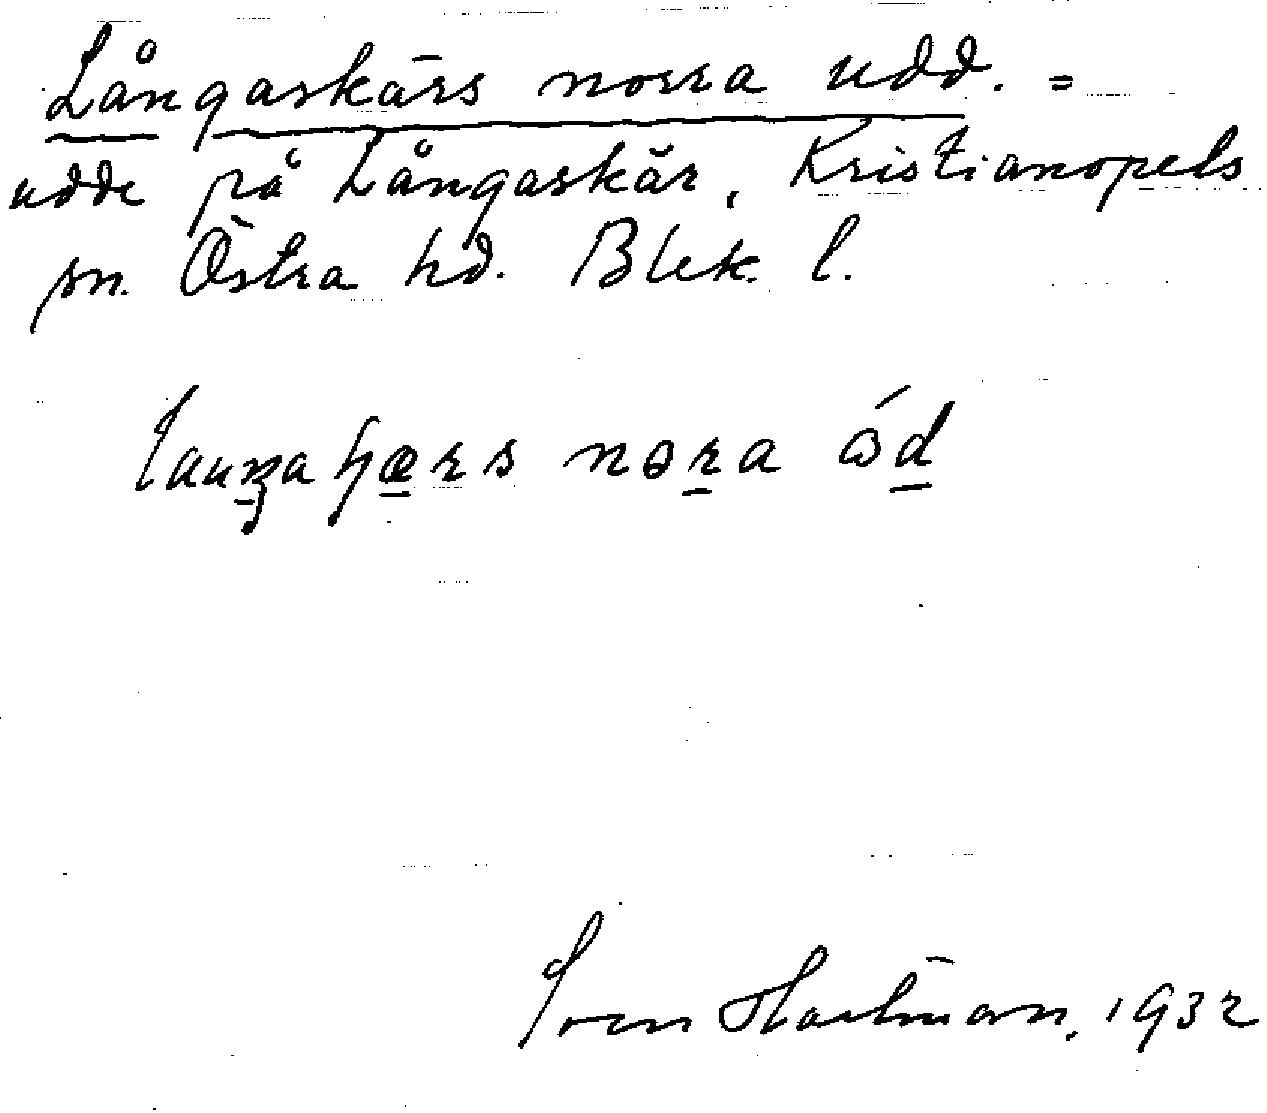 Långaskärs norra udd. =
udde på Långaskär, Kristianopels
sn. Östra hd. Blek. l.
nəra
Sven Hartman, 1932